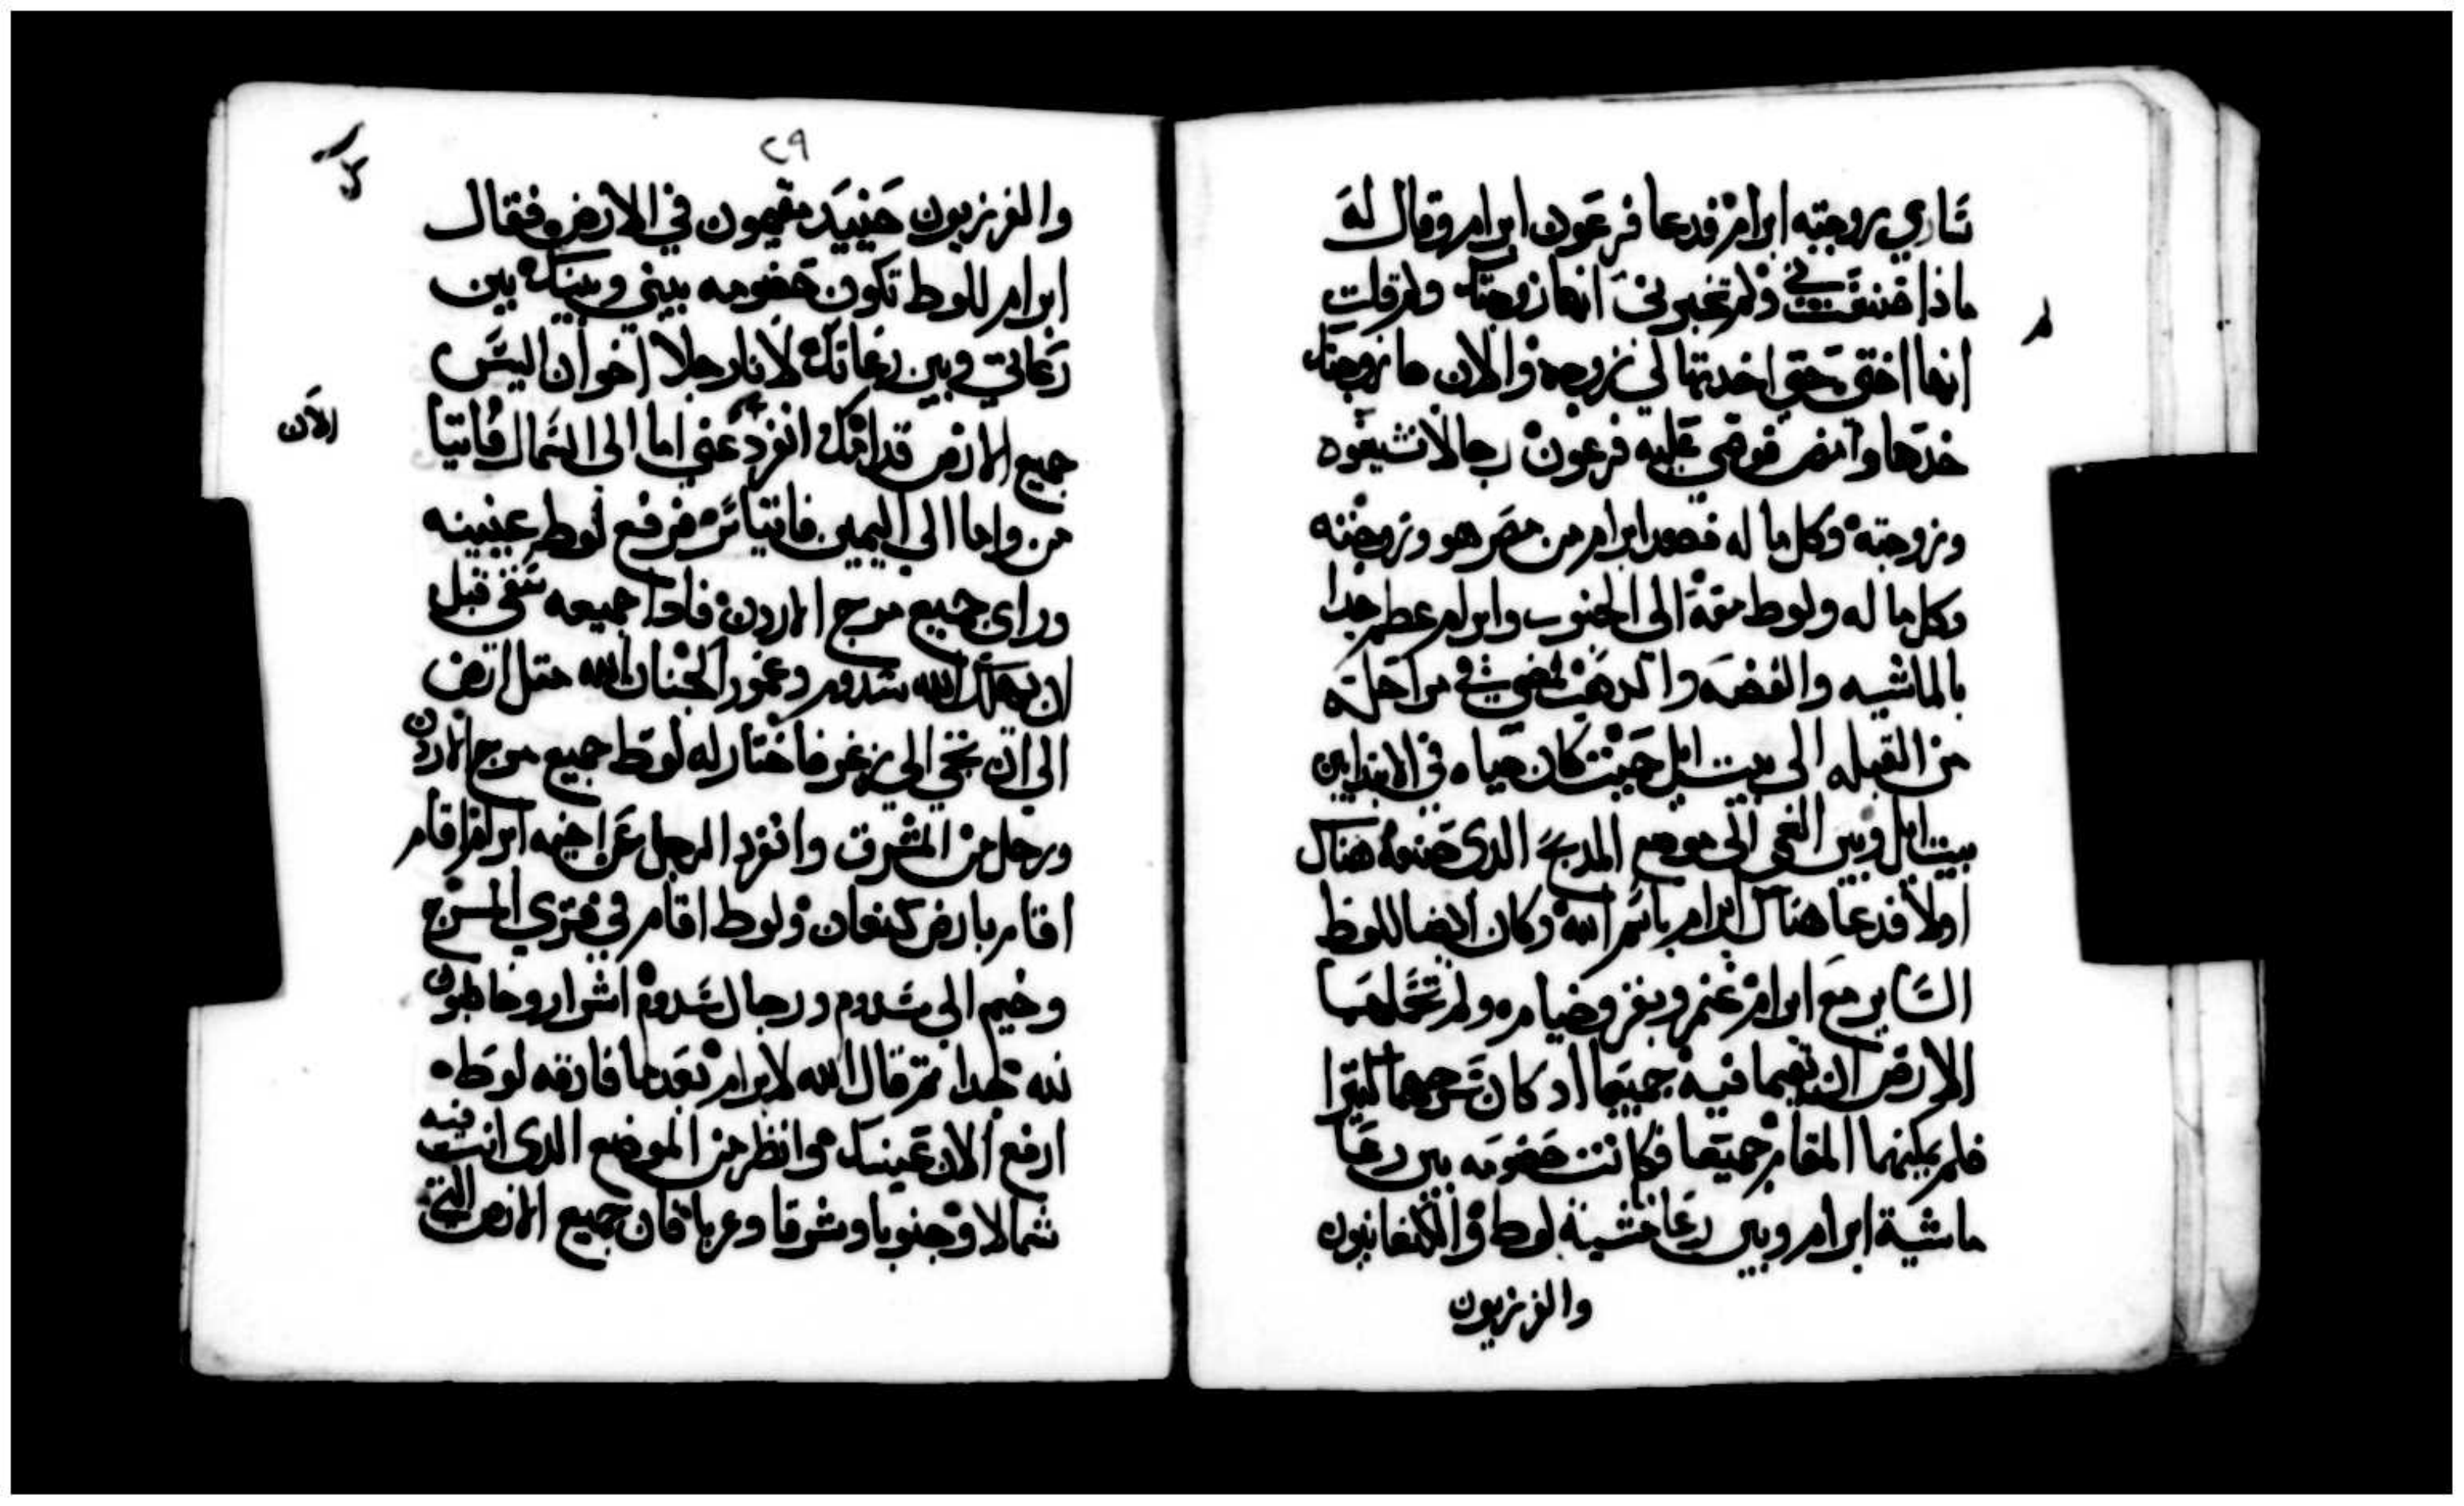 ساري زوجته ابرام فدعا فرعون ابرام وقال له
ماذا صنعت بي ولم تخبرني انها زوجتك ولم قلت
لم
انها اختي حتى اخدتها لي زوجه والان ها زوجتك
خدها وامض فوصي عليه فرعون رجالا تشيعوه
وزوجته وكل ما له فصعد ابرام من مصر هو وزوجته
وكل ما له ولوط معه الى الجنوب وابرام عظم جدا
بالماشيه والفضه والدهب فمضى في مراحله
من القبله الى بيت ايل حيث كان خباه في الابتدا بين
بيت ايل وبين العي الى موضع المدبح الدى صنعه هناك
اولا فدعا هناك ابرام باسم الله وكان ايضا للوط
الساير مع ابرام غنم وبقر وخيام ولم تحملهما
الارض ان يقيما فيه جميعا اد كان سرحهما كثيرا
فلم يمكنهما المقام جميعا فكانت خصومه بين رعا
ماشية ابرام وبين رعا ماشية لوط والكنعانيون
والفرزيون
٢٩
والفرزيون حينيد مقيمون في الارض فقال
ابرام للوط تكون خصومه بيني وبينك بين
رعاتي وبين رعاتك لانا رجلا اخوان اليس
جميع الارض قدامك انفرد عني اما الى الشمال فاتيا
الآن
من واما الي اليمين فاتياسر فرفع لوط عينينه
وراى جميع مرج الاردن فادا جميعه سقى قبل
ان يهلك الله سدوم وعمورا كجنان الله متل ارض
الى ان تجي الي زغر فاختار له لوط جميع مرج الاردن
ورحل من المشرق وانفرد الرجل عن اخيه ابرام اقام
اقام بارض كنعان ولوط اقام في قري المرج
وخيم الي سدوم ورجال سدوم اشرار وخاطيون
لله جدا تم قال الله لابرام بعدما فارقه لوط
ارفع الان عينيك وانظر من الموضع الدى انت فيه
شمالا وجنوبا وشرقا وغربا فان جميع الارض التي